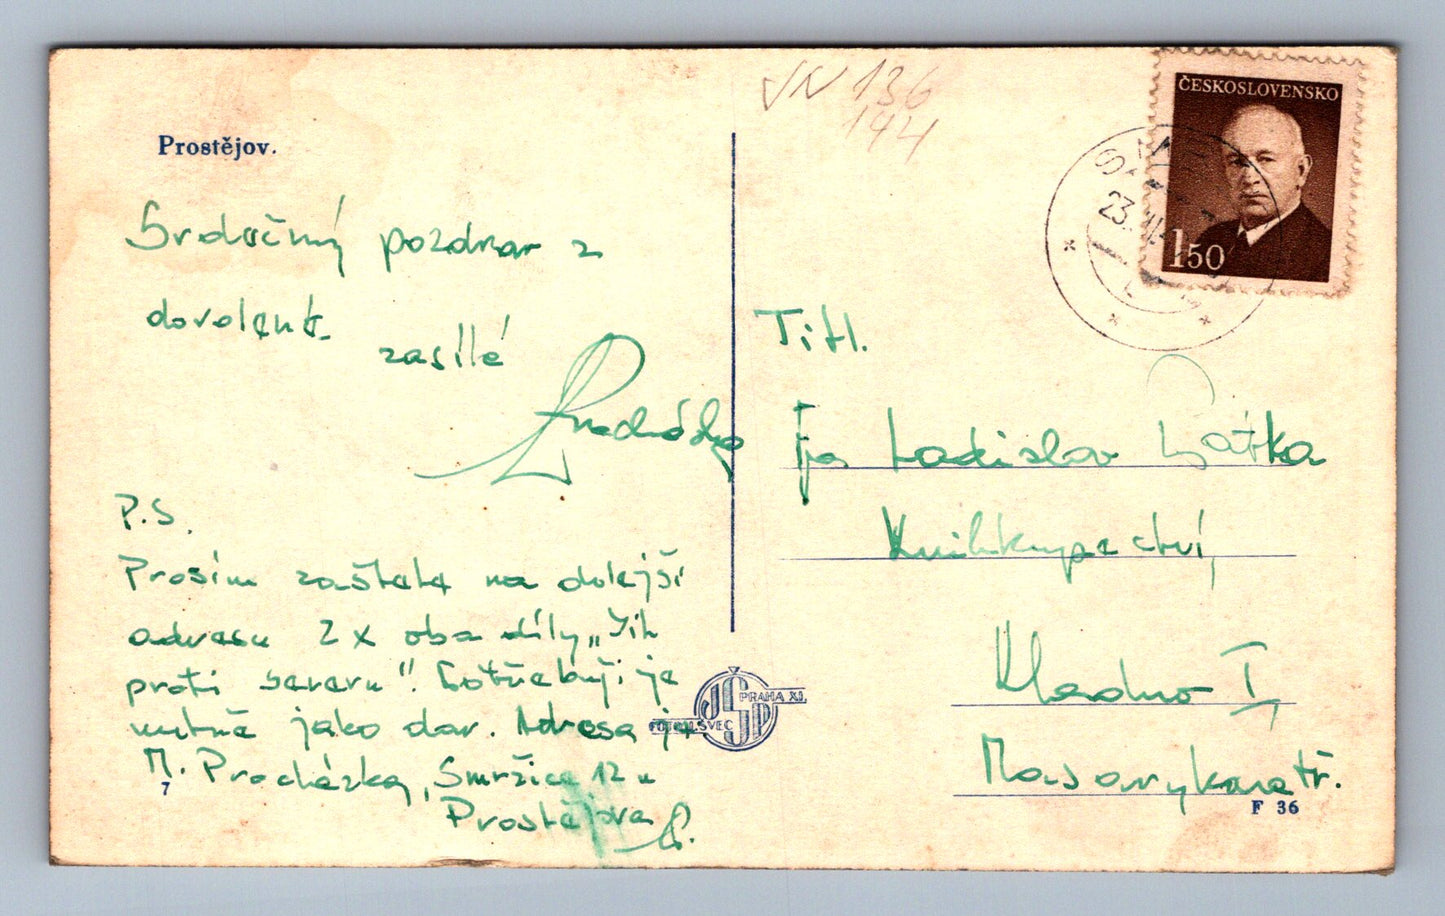 Prostějov.
Srdečný pozdrav z
dovolené
zasílé
Procházka
P.S.
Prosím zašlete na dolejší
adresu 2 x oba díly „Jih
proti severu". Potřebuji je
nutně jako dar. Adresa je
M. Procházka, Smržice 12 u
Prostějova
P.
7
VN 136
144
ČESKOSLOVENSKO
1.50
23.
Titl.
Fa Ladislav
Knihkupectví,
Kladno I
Masarykova tř.
JŠP
PRAHA XI.
FOTO J. ŠVEC
F 36